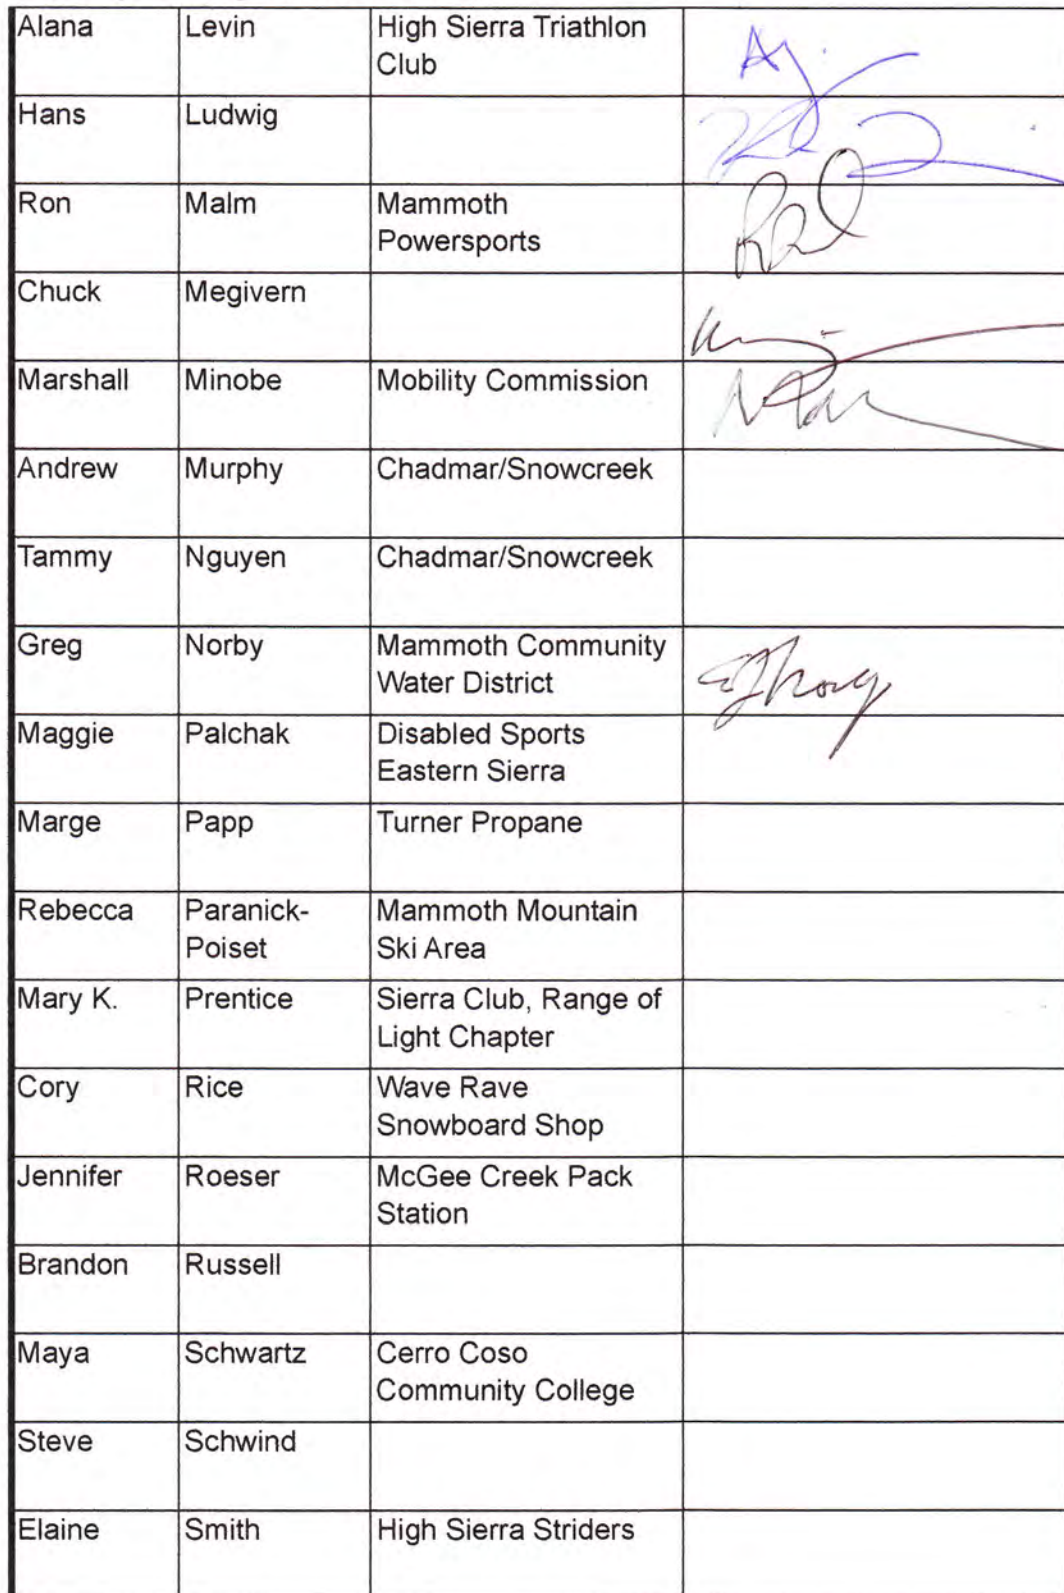 Alana Levin High Sierra Triathlon
Club
Hans Ludwig
Ron Malm Mammoth
Powersports
Chuck Megivern
Marshall Minobe Mobility Commission
Andrew Murphy Chadmar/Snowcreek
Tammy Nguyen Chadmar/Snowcreek
Greg Norby Mammoth Community
Water District
Maggie Palchak Disabled Sports
Eastern Sierra
Marge Papp Turner Propane
Rebecca Paranick- Mammoth Mountain
Poiset Ski Area
Mary K. Prentice Sierra Club, Range of
Light Chapter
Cory Rice Wave Rave
Snowboard Shop
Jennifer Roeser McGee Creek Pack
Station
Brandon Russell
Maya Schwartz Cerro Coso
Community College
Steve Schwind
Elaine Smith High Sierra Striders